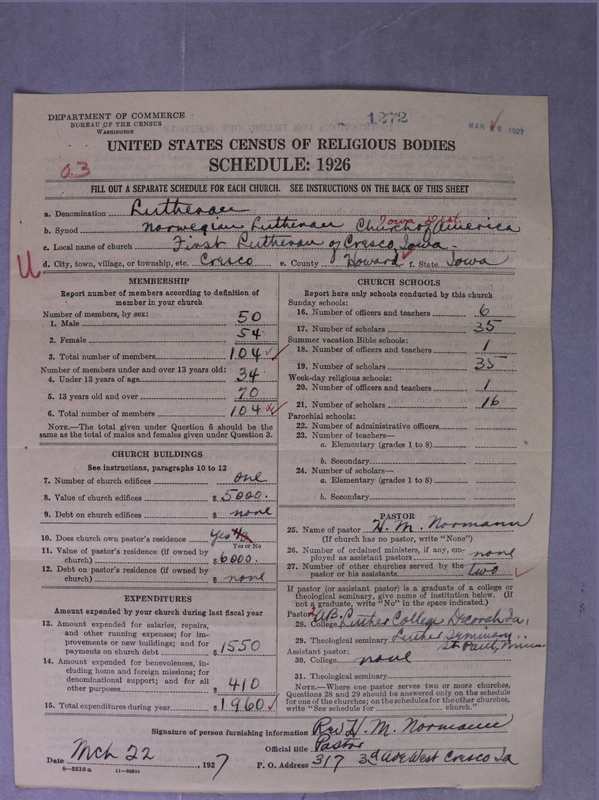 DEPARTMENT OF COMMERCE
BUREAU OF THE CENSUS
WASHINGTON
1272
MAR 1927
UNITED STATES CENSUS OF RELIGIOUS BODIES
SCHEDULE: 1926
0.3
FILL OUT A SEPARATE SCHEDULE FOR EACH CHURCH. SEE INSTRUCTIONS ON THE BACK OF THIS SHEET
a. Denomination Lutheran
Iowa Dist
b. Synod Norwegian Lutheran Church of America
c. Local name of church First Lutheran of Cresco, Iowa.
d. City, town, village, or township, etc. Cresco e. County Howard f. State Iowa
U
MEMBERSHIP
Report number of members according to definition of
member in your church
Number of members, by sex:
1. Male 50
2. Female 54
3. Total number of members 104
Number of members under and over 13 years old:
4. Under 13 years of age 34
5. 13 years old and over 70
6. Total number of members 104
NOTE.—The total given under Question 6 should be the
same as the total of males and females given under Question 3.
CHURCH BUILDINGS
See instructions, paragraphs 10 to 12
7. Number of church edifices one
8. Value of church edifices $ 5000.
9. Debt on church edifices $ none
10. Does church own pastor's residence yes
Yes or No
11. Value of pastor's residence (if owned by
church) $ 6000.
12. Debt on pastor's residence (if owned by
church) $ none
EXPENDITURES
Amount expended by your church during last fiscal year
13. Amount expended for salaries, repairs,
and other running expenses; for im-
provements or new buildings; and for
payments on church debt $ 1550
14. Amount expended for benevolences, in-
cluding home and foreign missions; for
denominational support; and for all
other purposes $ 410
15. Total expenditures during year $ 1960
CHURCH SCHOOLS
Report here only schools conducted by this church
Sunday schools:
16. Number of officers and teachers 6
17. Number of scholars 35
Summer vacation Bible schools:
18. Number of officers and teachers 1
19. Number of scholars 35
Week-day religious schools:
20. Number of officers and teachers 1
21. Number of scholars 16
Parochial schools:
22. Number of administrative officers
23. Number of teachers—
a. Elementary (grades 1 to 8)
b. Secondary
24. Number of scholars—
a. Elementary (grades 1 to 8)
b. Secondary
PASTOR
25. Name of pastor H. M. Normann
(If church has no pastor, write "None")
26. Number of ordained ministers, if any, em-
ployed as assistant pastors none
27. Number of other churches served by the
pastor or his assistants two
If pastor (or assistant pastor) is a graduate of a college or
theological seminary, give name of institution below. (If
not a graduate, write "No" in the space indicated.)
Pastor:
28. College Luther College Decorah Ia.
29. Theological seminary Luther Seminary
St. Paul, Minn
Assistant pastor:
30. College none
31. Theological seminary
NOTE.—Where one pastor serves two or more churches,
Questions 28 and 29 should be answered only on the schedule
for one of the churches; on the schedules for the other churches,
write "See schedule for church."
Signature of person furnishing information Rev H. M. Normann
Official title Pastor
Date Mch 22, 1927 P. O. Address 317 3d Ave West Cresco Ia
8—5518a